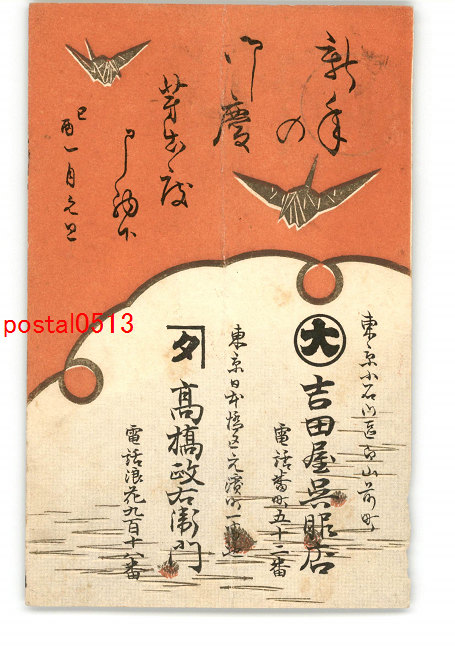 新年の
御慶
芽出度
申納候
己酉一月元旦
東京小石川区白山前町
大
吉田屋呉服店
電話番町五十二番
東京日本橋区元濱町
タ
高橋政右衛門
電話浪花九百十八番
postal0513